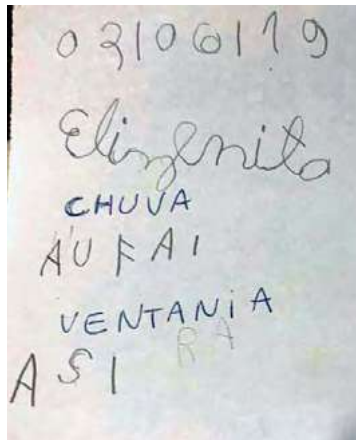 03106119
Elizenita
CHUVA
AUFAI
VENTANiA
RA
ASI